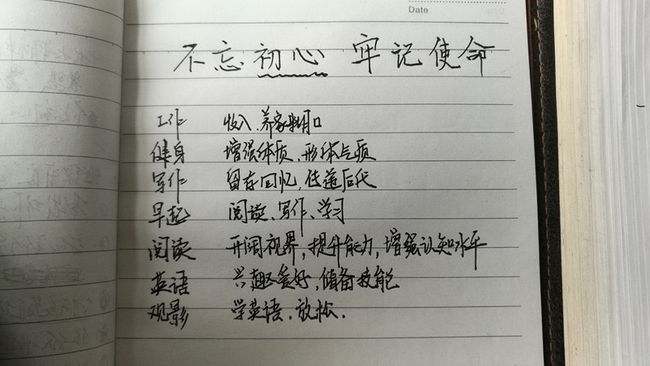 Date
不忘初心 牢记使命
工作 收入、养家糊口
健身 增强体质、形体气质
写作 留存回忆,传递后代
早起 阅读、写作、学习
阅读 开阔视界,提升能力,增强认知水平
英语 兴趣爱好,储备技能
观影 学英语、放松.